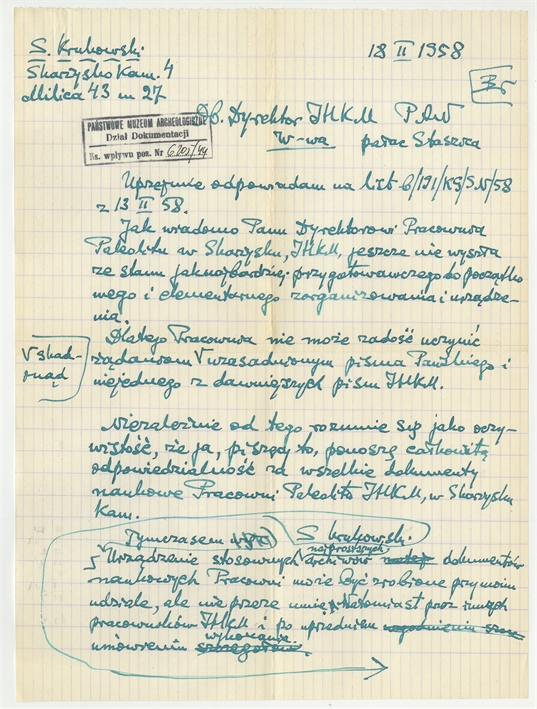 S. Krukowski
Skarżysko Kam. 4
Milica 43 m 27
18 II 1958
Br
Ob. Dyrektor IHKM PAN
W-wa pałac Staszica
PAŃSTWOWE MUZEUM ARCHEOLOGICZNE
Dział Dokumentacji
Ks. wpływu poz. Nr
Uprzejmie odpowiadam na list 6/191/KS/SN/58
z 13 II 58.
Jak wiadomo Panu Dyrektorowi Pracownia
Paleolitu w Skarżysku, IHKM, jeszcze nie wyszła
ze stanu jaknajbardziej przygotowawczego do początko
wego i elementarnego zorganizowania i urządze-
nia.
Dlatego Pracownia nie może zadość uczynić
żądaniom V uzasadnionym pisma Pańskiego i
niejednego z dawniejszych pism IHKM.
V skąd-
inąd
Niezależnie od tego rozumie się jako oczy-
wistość, że ja, piszący to, ponoszę całkowitą
odpowiedzialność za wszelkie dokumenty
naukowe Pracowni Paleolitu IHKM, w Skarżysku
Kam.
Tymczasem
S Krukowski.
najprostszych
Urządzenie stosownych archiwów dokumentów
naukowych Pracowni może być zrobione przy moim
udziale, ale nie przeze mnie, natomiast przez innych
pracowników IHKM i po uprzednim
wykonania
umówieniu